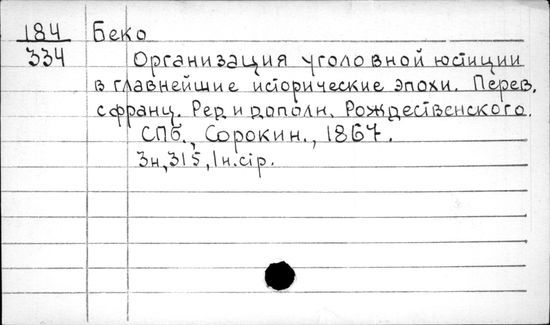 184 Беко
334 Организация уголовной юстиции
в главнейшие исторические эпохи. Перев.
с франц. Ред. и дополн. Рождественского.
СПб., Сорокин., 1867.
3н, 315, 1н. стр.